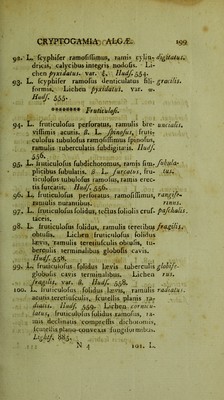 CRYPTOGAMIA ALGÆ. 199
92. L. scyphifer ramosissimus, ramis cylin- digitatus.
dricis, calycibus integris nodosis. Li-
chen pyxidatus. var. ξ. Huds. 554.
93. L. scyphifer ramosus denticulatus fili- gracilis.
formis. Lichen pyxidatus. var. ο.
Huds. 555.
******** Fruticulosi.
94. L. fruticulosus perforatus, ramulis bre- uncialis.
vissimis acutis. β. L. spinosus, fruti-
culosus tubulosus ramosissimus spinosus,
ramulis tuberculatis subdigitatis. Huds.
556.
95. L. fruticulosus subdichotomus, ramis sim- subula-
plicibus subulatis. β. L. furcatus, fru- tus.
ticulosus tubulosus ramosus, ramis erec-
tis furcatis. Huds. 556.
96. L. fruticulosus perforatus ramosissimus, rangife-
ramulis nutantibus. rinus.
97. L. fruticulosus solidus, tectus foliolis crus- paschalis.
taceis.
98. L. fruticulosus solidus, ramulis teretibus fragilis.
obtusis. Lichen fruticulosus solidus
lævis, ramulis teretiusculis obtusis, tu-
berculis terminalibus globosis cavis.
Huds. 558.
99. L. fruticulosus solidus lævis tuberculis globife-
globosis cavis terminalibus. Lichen rus.
fragilis, var. β. Huds. 558.
100. L. fruticulosus solidus lævis, ramulis radiatus.
acutis teretiusculis, scutellis planis ra-
diatis. Huds. 559. Lichen
fruticulosus solidus ramosus, ra-
mis declinatis compressis dichotomis,
scutellis plano-convexis fungiformibus.
Lightf. 885.
N 4 101. L.